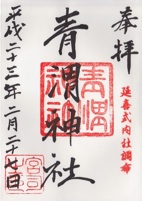 奉拝
延喜式内社調布
青渭神社
平成二十三年二月二十七日